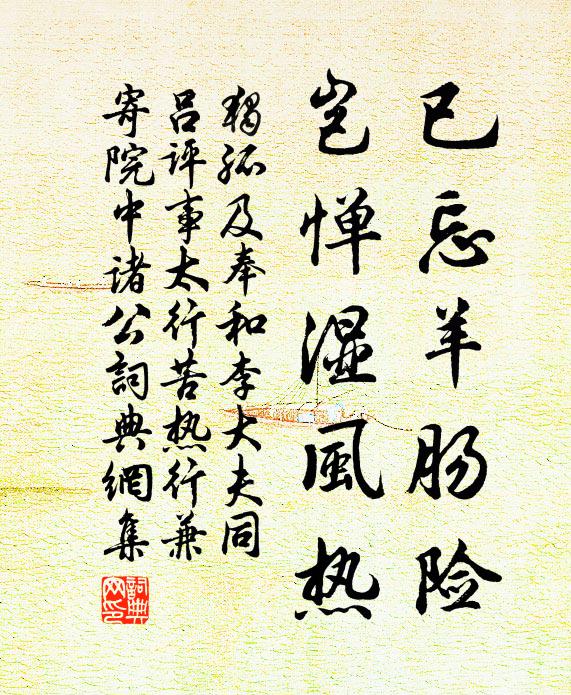 已忘羊肠险
岂惮湿風热
獨孤及奉和李大夫同
吕评事太行苦热行兼
寄院中诸公詞典網集
詞典
网印